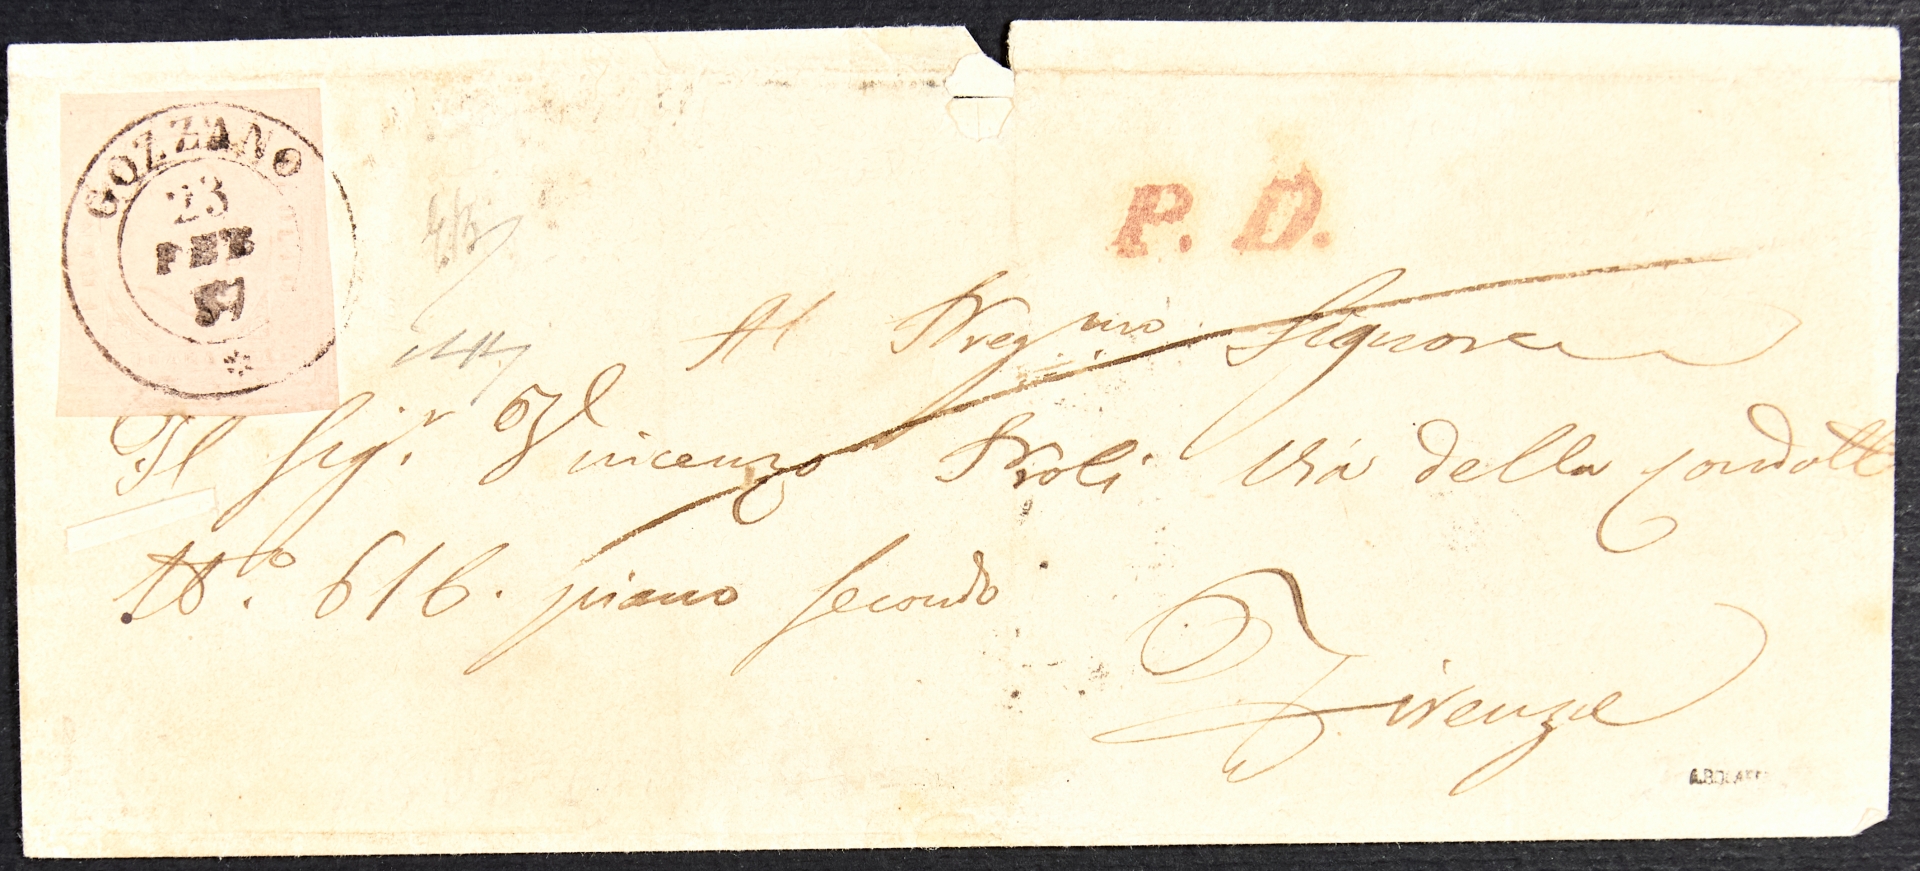 GOZZANO
23
FEB
57
P. D.
Al Preg.mo Signore
Il Sig.r Vincenzo Proli Via della Condott
N.o 616. piano secondo
Firenze